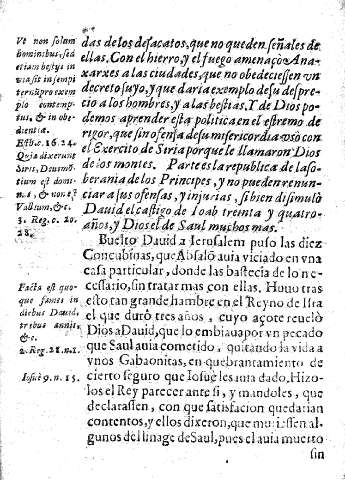 Vt non solum
hominibus, sed
etiam bestijs in
uia sit in sempi
ternũ pro exem
plo contemp-
tus, & in obe-
dientiæ.
Esth. c. 16. 24.
Quia dixerunt
Siri, Deus mõ-
tium est domi-
n⁹, & non est
Vallium, &c.
3. Reg. c. 20.
28.
Facta est quo-
que fames in
diebus Dauid,
tribus annis,
&c.
2. Reg. 21. n. 1.
Iosuè 9. n. 15.
das de los desacatos, que no queden señales de
ellas. Con el hierro, y el fuego amenaçò Ana-
xarxes a las ciudades, que no obedeciessen vn
decreto suyo, y que daria exemplo de su despre-
cio a los hombres, y a las bestias. Y de Dios po-
demos aprender esta politica en el estremo de
rigor, que sin ofensa de su misericordia vsò con
el Exercito de Siria porque le llamaron Dios
de los montes. Parte es la republica de la so-
berania de los Principes, y no pueden renun-
ciar a sus ofensas, y injurias, si bien disimulò
Dauid el castigo de Ioab treinta y quatro
años, y Dios el de Saul muchos mas.
Buelto Dauid a Ierusalem puso las diez
Concubinas, que Absalõ auia viciado en vna
casa particular, donde las bastecia de lo ne-
cessario, sin tratar mas con ellas. Houo tras
esto tan grande hambre en el Reyno de Isra
el que durò tres años, cuyo açote reuelò
Dios a Dauid, que lo embiaua por vn pecado
que Saul auia cometido, quitando la vida a
vnos Gabaonitas, en quebrantamiento de
cierto seguro que Iosue les auia dado. Hizo-
los el Rey parecer ante si, y mandoles, que
declarassen, con que satisfacion quedarian
contentos, y ellos dixeron, que muriessen al-
gunos del linage de Saul, pues el auia muerto
sin